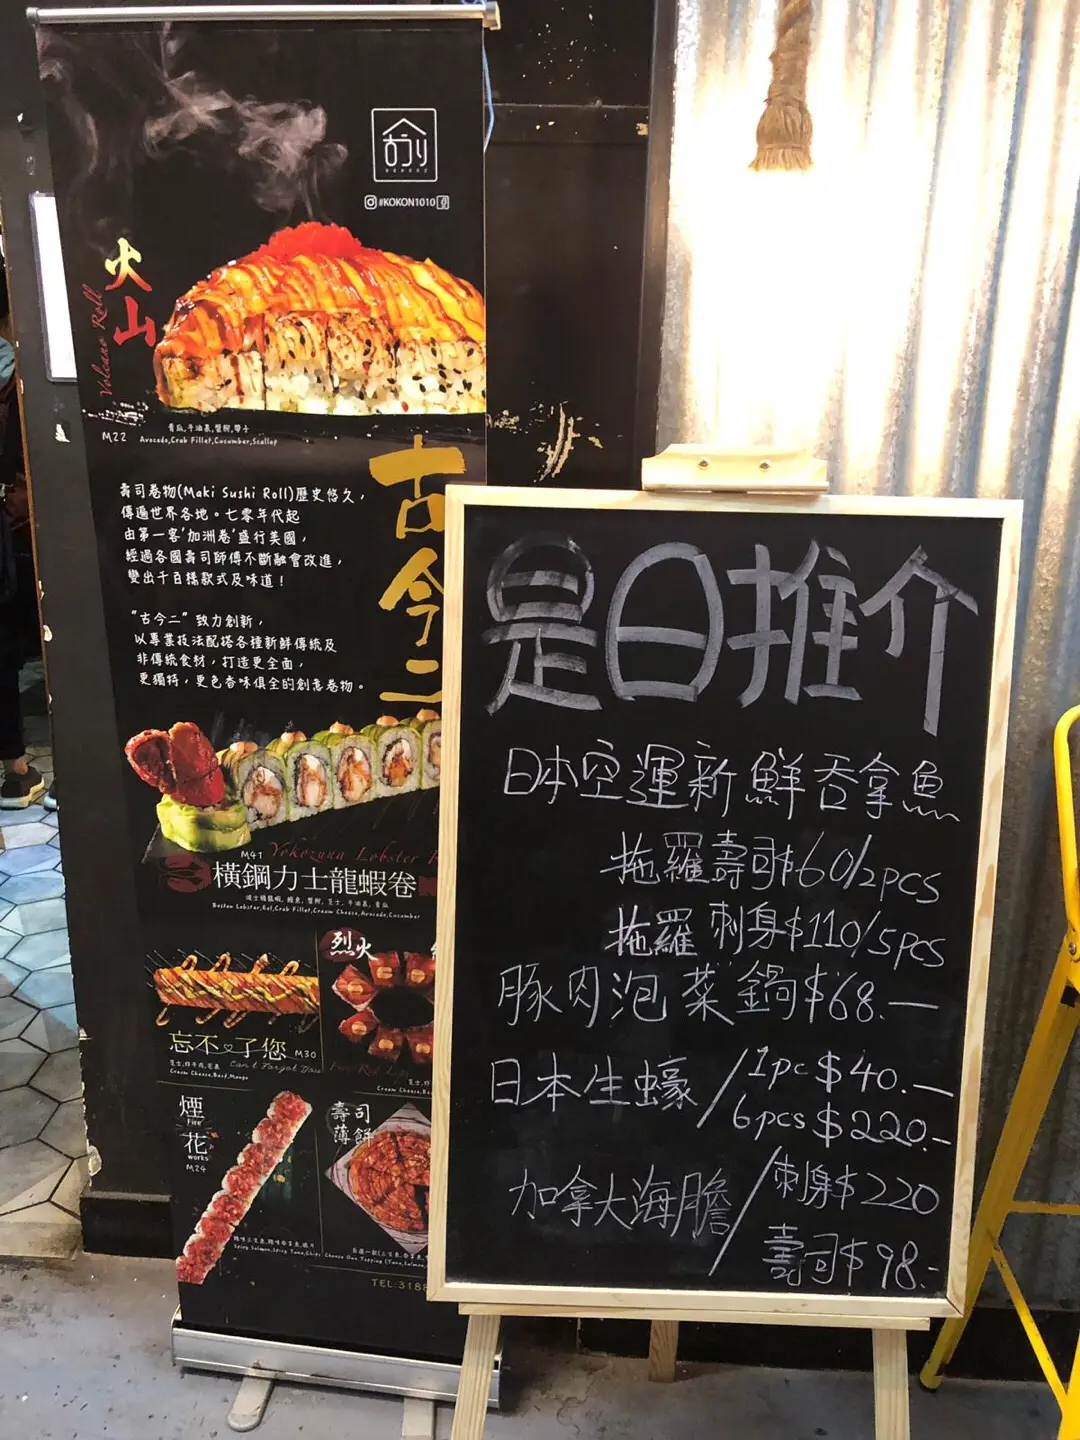 古今二
#KOKON1010
火山
Volcano Roll
M22
青瓜,牛油果,蟹柳,帶子
Avocado,Crab Fillet,Cucumber,Scallop
壽司卷物(Maki Sushi Roll)歷史悠久，
傳遍世界各地。七零年代起
由第一客'加洲卷'盛行美國，
經過各國壽司師傅不斷融會改進，
變出千百樣款式及味道！
"古今二" 致力創新，
以專業技法配搭各種新鮮傳統及
非傳統食材，打造更全面，
更獨特，更色香味俱全的創意卷物。
M41 Yokozuna Lobster R
橫鋼力士龍蝦卷
波士頓龍蝦, 鰻魚, 蟹柳, 芝士, 牛油果, 青瓜
Boston Lobster,Eel,Crab Fillet,Cream Cheese,Avocado,Cucumber
忘不了您 M30
Can't Forget You
Cream Cheese,Beef,Mango
烈火
Cream Cheese,
煙花
Fire
works
M24
Spicy Salmon,Spicy Tuna,Chips
壽司
薄餅
Choose One Topping (Tuna,Salmon,
TEL:3188
是日推介
日本空運新鮮吞拿魚
拖羅壽司$60/2pcs
拖羅刺身$110/5pcs
豚肉泡菜鍋$68.—
日本生蠔/1pc $40.—
6pcs $220.-
加拿大海膽/刺身$220
壽司$98.-